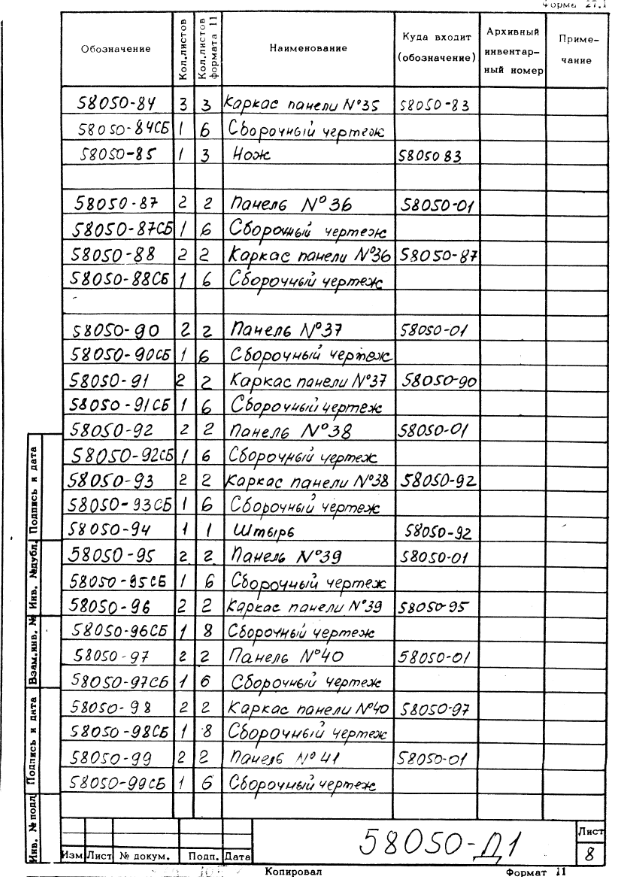 Форма 27.1
Обозначение Кол.листов Кол.листов формата 11 Наименование Куда входит (обозначение) Архивный инвентарный номер Примечание
58050-84 3 3 Каркас панели №35 58050-83
58050-84СБ 1 6 Сборочный чертеж
58050-85 1 3 Нож 58050 83
58050-87 2 2 Панель №36 58050-01
58050-87СБ 1 6 Сборочный чертеж
58050-88 2 2 Каркас панели №36 58050-87
58050-88СБ 1 6 Сборочный чертеж
58050-90 2 2 Панель №37 58050-01
58050-90СБ 1 6 Сборочный чертеж
58050-91 2 2 Каркас панели №37 58050-90
58050-91СБ 1 6 Сборочный чертеж
58050-92 2 2 Панель №38 58050-01
58050-92СБ 1 6 Сборочный чертеж
58050-93 2 2 Каркас панели №38 58050-92
58050-93СБ 1 6 Сборочный чертеж
58050-94 1 1 Штырь 58050-92
58050-95 2 2 Панель №39 58050-01
58050-95СБ 1 6 Сборочный чертеж
58050-96 2 2 Каркас панели №39 58050-95
58050-96СБ 1 8 Сборочный чертеж
58050-97 2 2 Панель №40 58050-01
58050-97СБ 1 6 Сборочный чертеж
58050-98 2 2 Каркас панели №40 58050-97
58050-98СБ 1 8 Сборочный чертеж
58050-99 2 2 Панель №41 58050-01
58050-99СБ 1 6 Сборочный чертеж
Подпись и дата
Инв. №дубл.
Взам.инв. №
Подпись и дата
Инв. № подл
Изм Лист № докум. Подп. Дата
58050-Д1
Лист
8
Копировал Формат 11